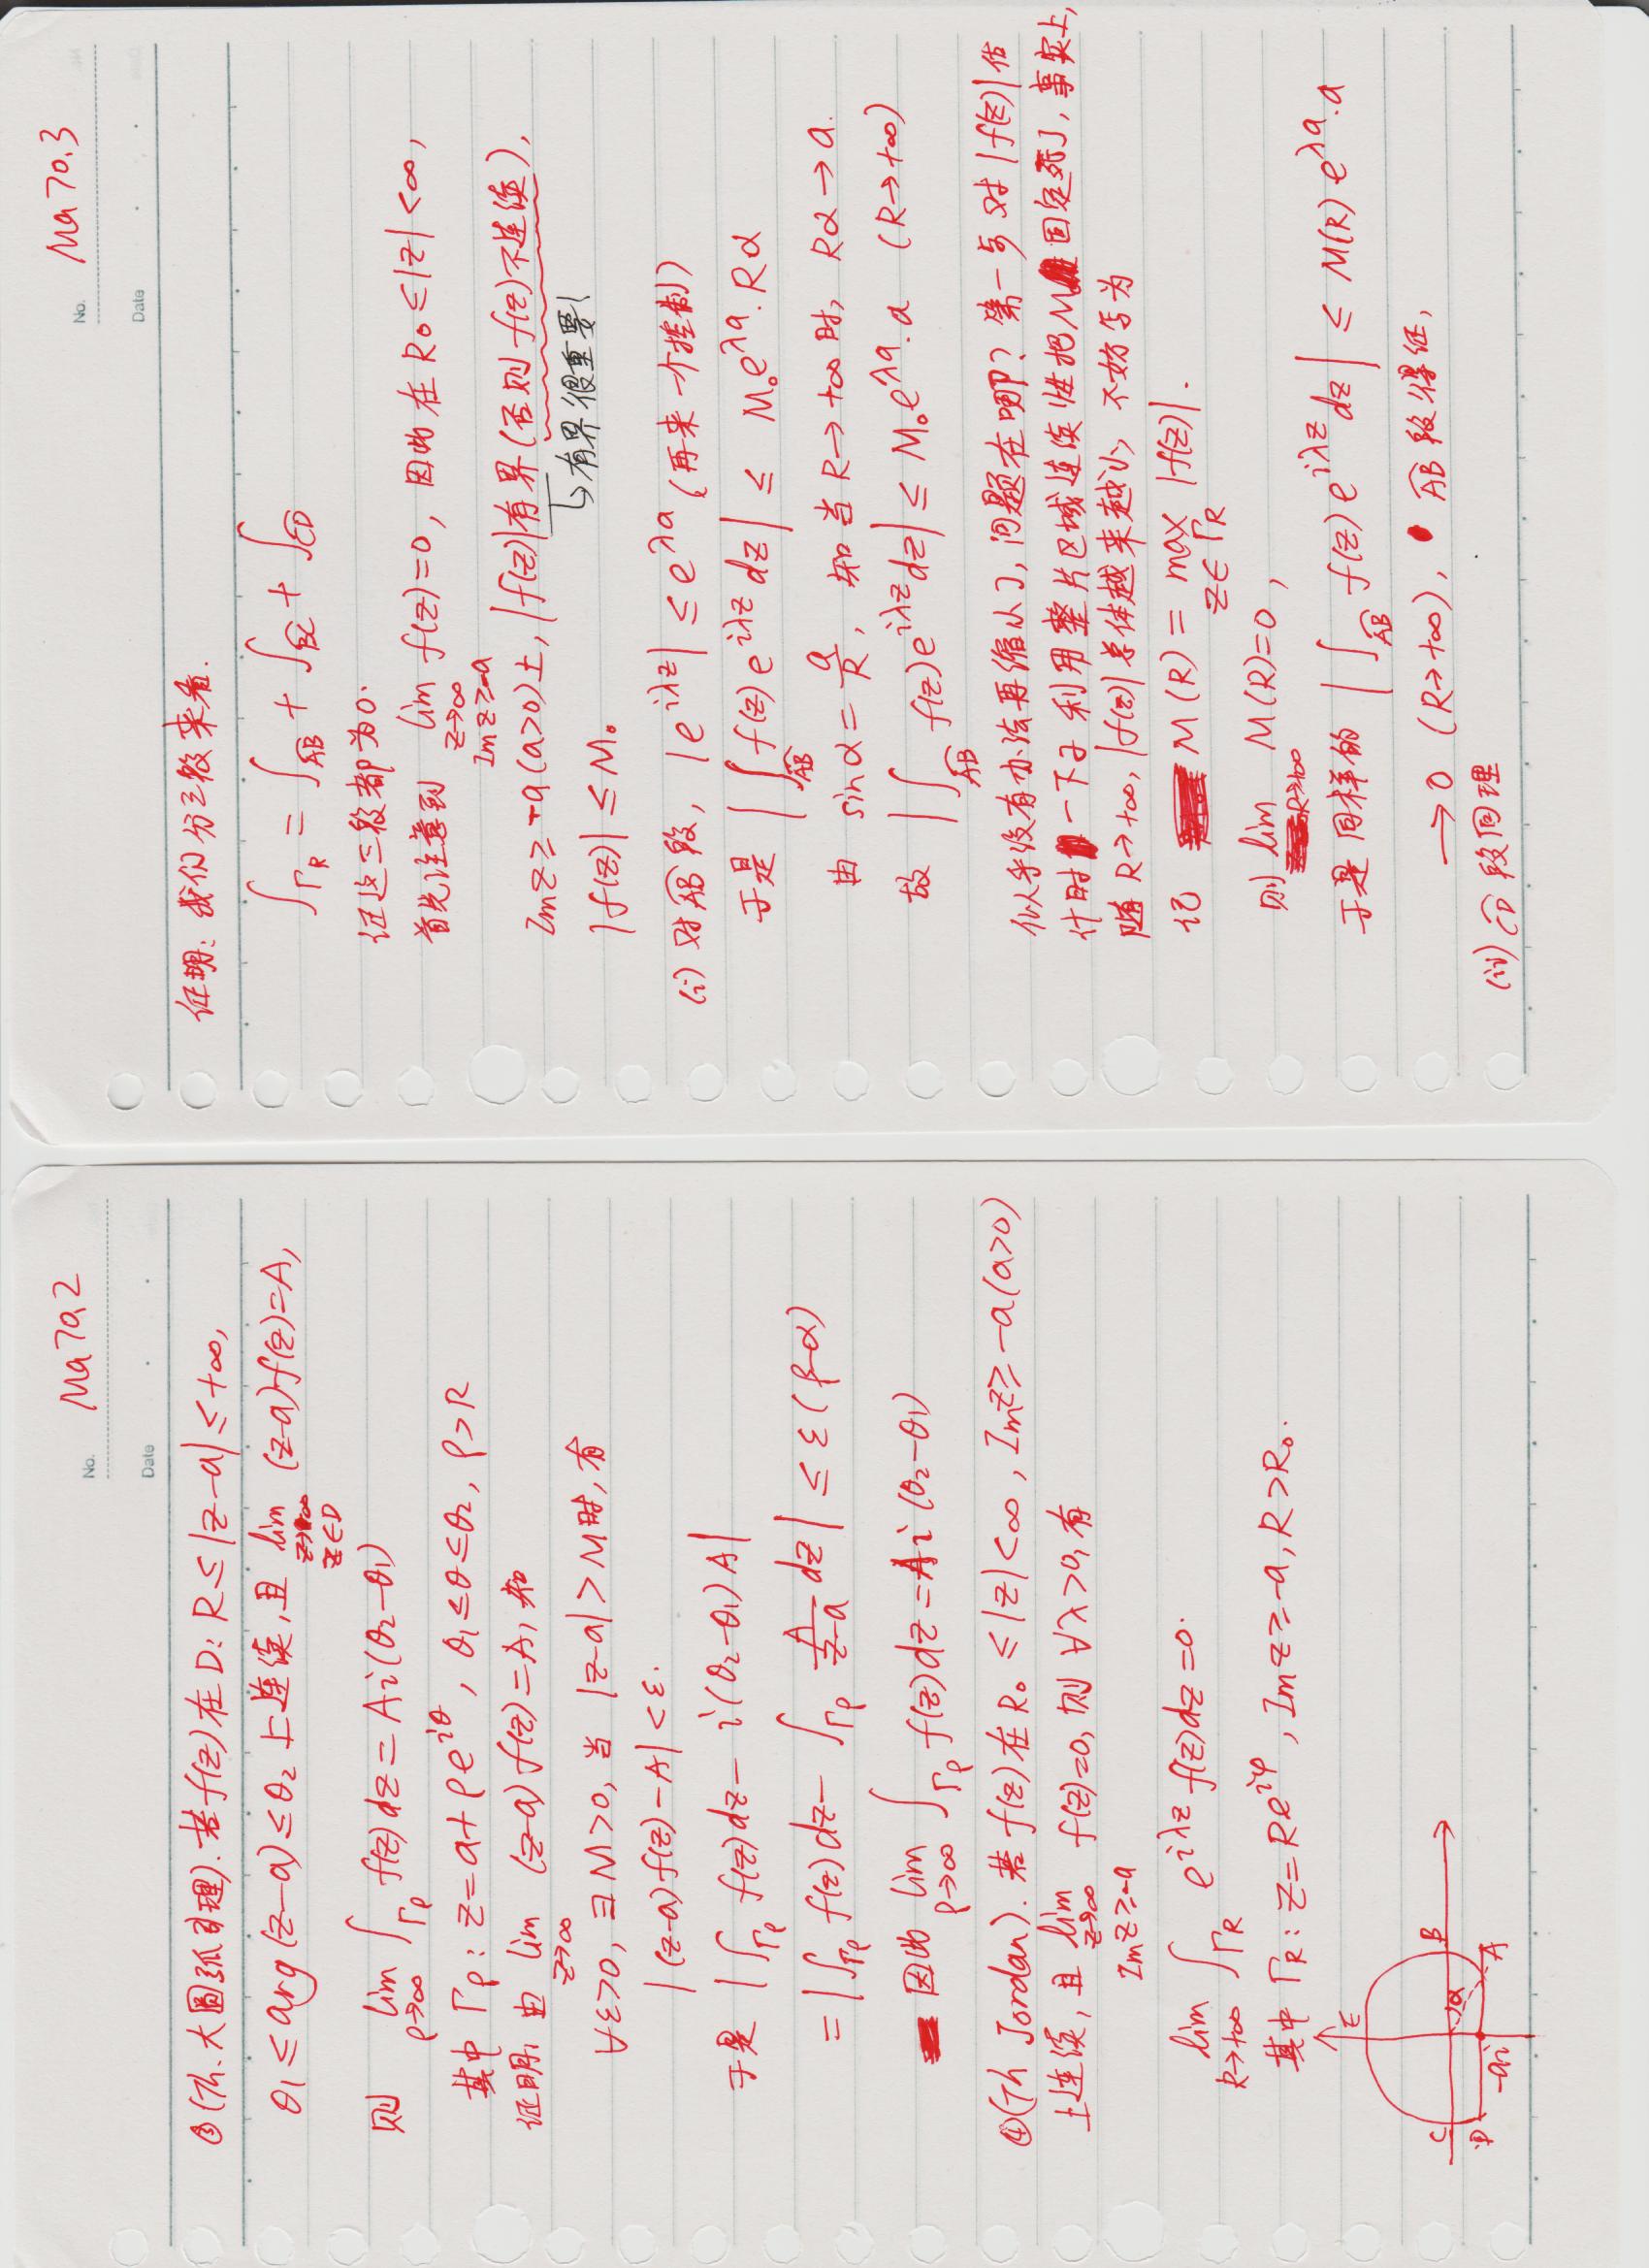 No. Ma70.2
Date
③(Th. 大圆弧引理). 若f(z)在D: R≤|z-a|≤+∞,
θ₁≤arg(z-a)≤θ₂上连续, 且 lim (z-a)f(z)=A,
z→∞
z∈D
则 lim ∫_Γρ f(z)dz=Ai(θ₂-θ₁)
ρ→∞
其中 Γρ: z=a+ρe^{iθ}, θ₁≤θ≤θ₂, ρ>R
证明: 由 lim (z-a)f(z)=A, 知
z→∞
∀ε>0, ∃M>0, 当 |z-a|>M时, 有
|(z-a)f(z)-A|<ε.
于是 |∫_Γρ f(z)dz- i(θ₂-θ₁)A|
=|∫_Γρ f(z)dz- ∫_Γρ A/(z-a) dz| ≤ ε(β-α)
因此 lim ∫_Γρ f(z)dz=Ai(θ₂-θ₁)
ρ→∞
④(Th Jordan). 若f(z)在R₀≤|z|<∞, Imz≥-a(a>0)
上连续, 且 lim f(z)=0, 则 ∀λ>0, 有
z→∞
Imz≥-a
lim ∫_ΓR e^{iλz} f(z)dz=0.
R→+∞
其中 ΓR: z=Re^{iφ}, Imz≥-a, R>R₀.
E
C B
α
D -ai A
No. Ma70.3
Date
证明: 我们分三段来看.
∫_ΓR = ∫_{⌒AB} + ∫_{⌒BC} + ∫_{⌒CD}
证这三段都为0.
首先注意到 lim f(z)=0, 因此在R₀≤|z|<∞,
z→∞
Imz≥-a
Imz≥-a(a>0)上, |f(z)|有界(否则f(z)不连续),
↳有界很重要!
|f(z)|≤M₀
(i) 对⌒AB段, |e^{iλz}|≤e^{λa} (再来一个控制)
于是 |∫_{⌒AB} f(z)e^{iλz}dz| ≤ M₀e^{λa}·Rα
由 sinα=a/R, 知当R→+∞时, Rα→a.
故 |∫_{⌒AB} f(z)e^{iλz}dz|≤M₀e^{λa}·a (R→+∞)
似乎没有办法再缩小了, 问题在哪? 第一步对|f(z)|估
计时一下子利用整片区域连续性把M固定死了, 事实上,
随R→+∞, |f(z)|总体越来越小, 不妨写为
记 M(R)= max |f(z)|.
z∈ΓR
则 lim M(R)=0,
R→+∞
于是同样的 |∫_{⌒AB} f(z)e^{iλz}dz| ≤ M(R)e^{λa}·a
→0 (R→+∞), ⌒AB段得证,
(ii) ⌒CD段同理